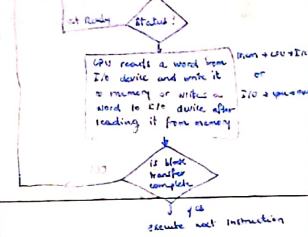 Status?
not Ready
CPU reads a word from
I/O device and write it
to memory or writes a
word to I/O device after
reading it from memory
Mem → CPU → I/O
or
I/O → CPU → mem
is block
transfer
complete
yes
execute next instruction